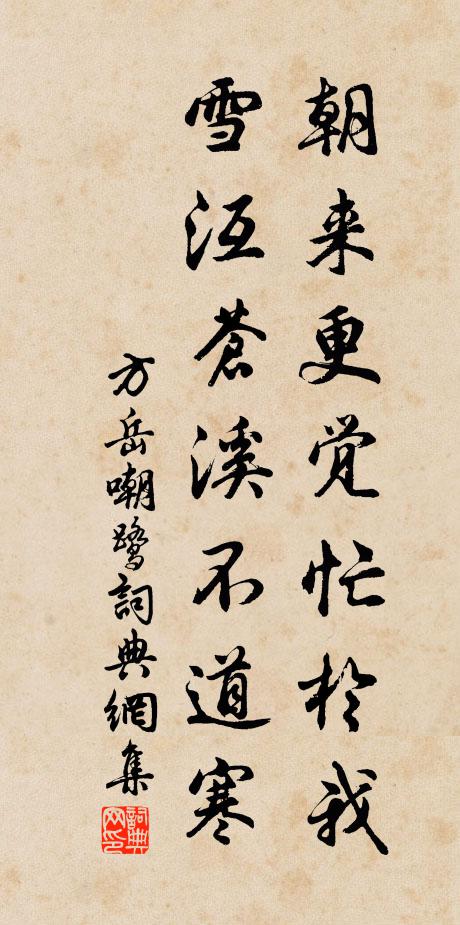 朝来更觉忙於我
雪沍蒼溪不道寒
方岳嘲鷺詞典網集
詞典网印